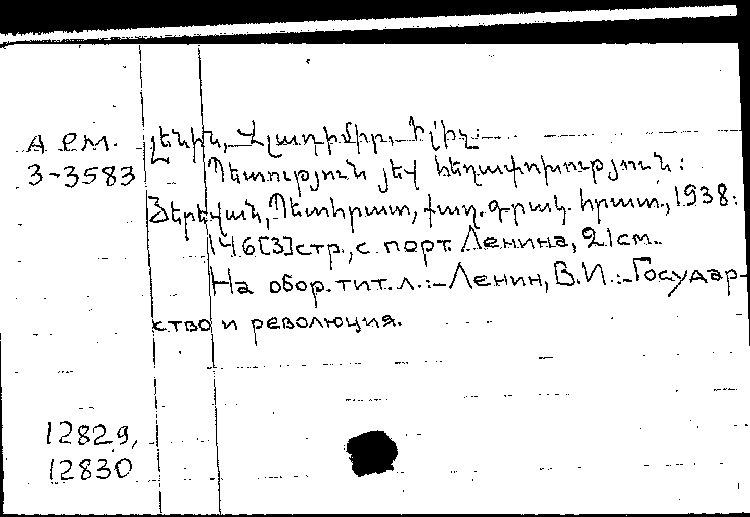 Арм. Լենին, Վլադիմիր Իլիչ.
3-3583 Պետություն յեվ հեղափոխություն:
Յերեվան, Պետհրատ, քաղ. գրակ. հրատ., 1938:
146[3]стр., с порт. Ленина, 21см.
На обор. тит. л.: Ленин, В.И.: Государ-
ство и революция.
12829,
12830